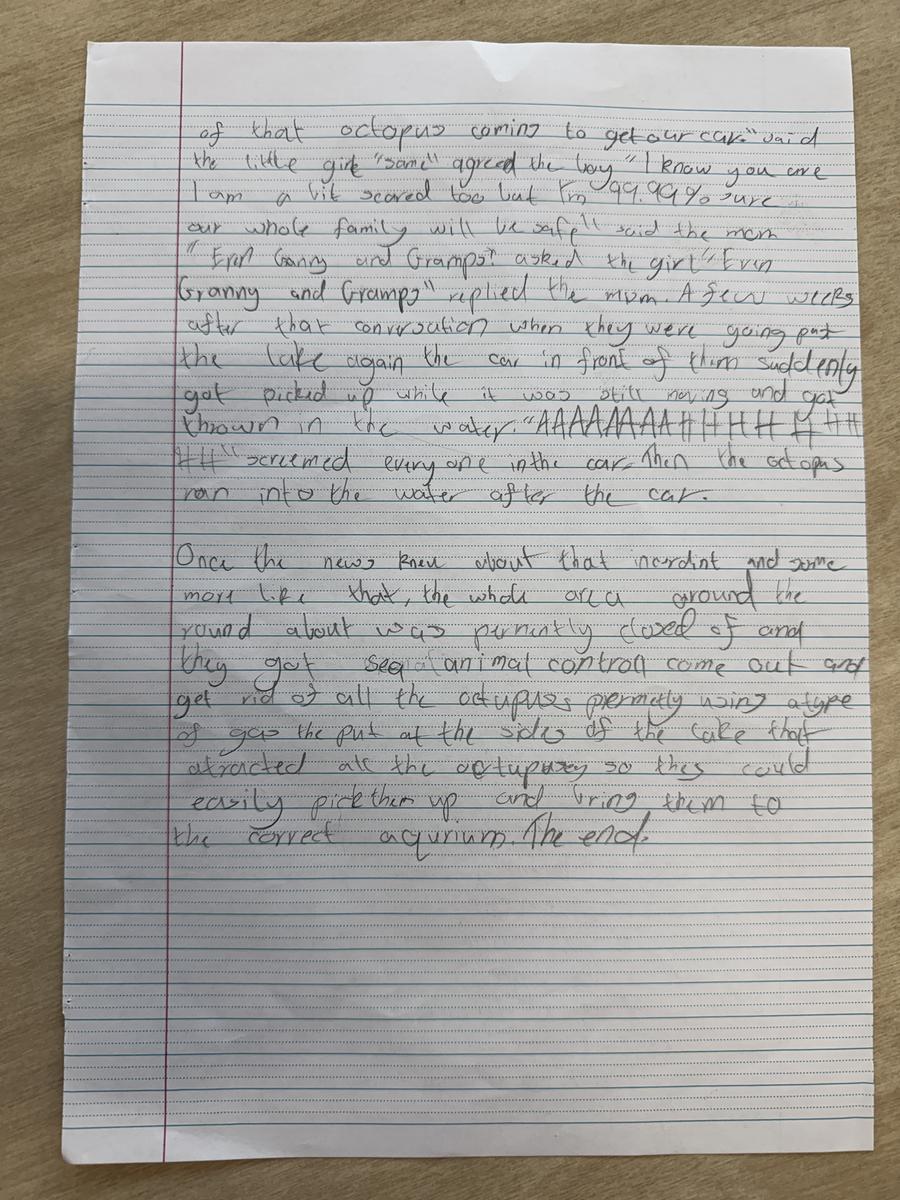 of that octopus coming to get our car." said
the little girl "same" agreed the boy "I know you are
I am a bit scared too but I'm 99.99% sure
our whole family will be safe" said the mom
"Even Granny and Gramps? asked the girl "Even
Granny and Gramps" replied the mum. A few weeks
after that conversation when they were going past
the lake again the car in front of them suddenly
got picked up while it was still moving and got
thrown in the water. "AAAAAAAAHHHHHHH
HH" screemed every one in the car. Then the octopus
ran into the water after the car.
Once the news knew about that incerdint and some
more like that, the whole area around the
round about was permintly closed of and
they got animal controll come out and
get rid of all the octupuses permetly using a type
of gas the put at the sides of the lake that
atracted all the octupusey so they could
easily pick them up and bring them to
the correct aqurium. The end.